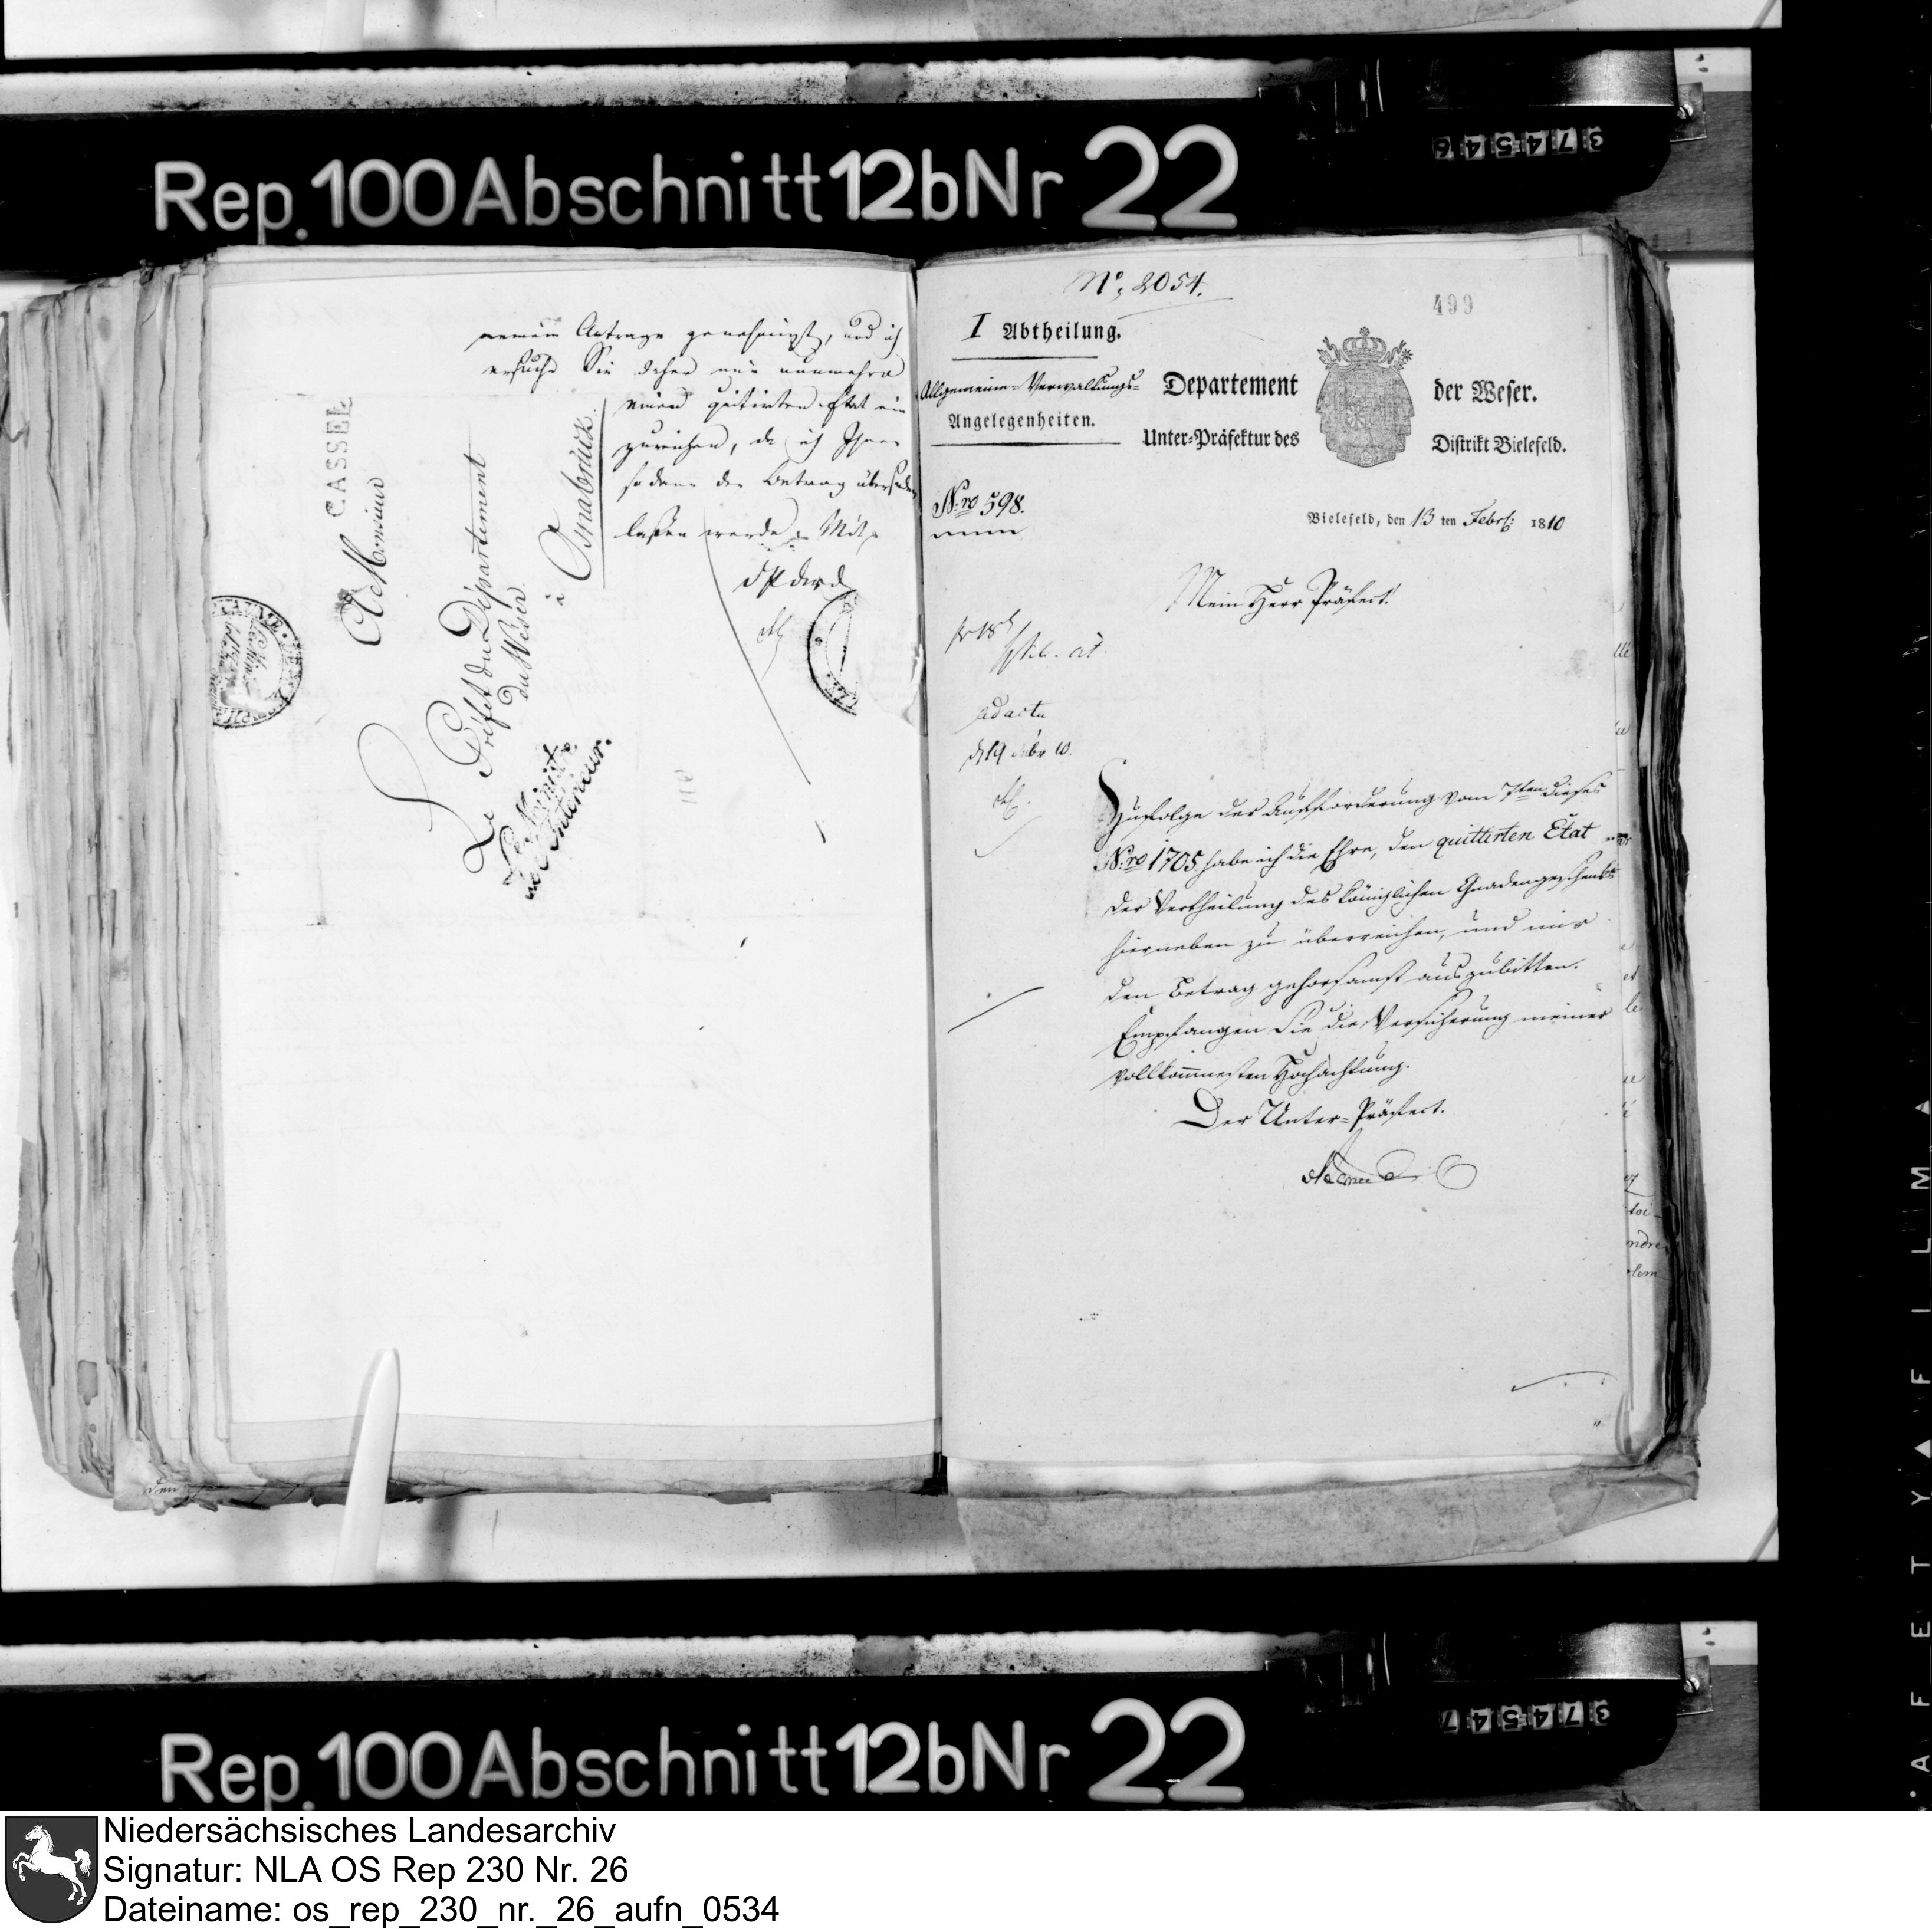 Rep. 100 Abschnitt 12b Nr 22
374546
meinem Antrage genehmigt, und ich
ersuche Sie daher nur nunmehro
einen quitirten Etat ein
zureichen, da ich Ihnen
sodann den Betrag übersenden
laßen werde
CASSEL
A Monsieur
Le Préfet du Département
du Weser
à
Osnabrück.
Le Ministre
de l'Intérieur.
No. 2054.
499
I Abtheilung.
Allgemeine-Verwaltungs-
Angelegenheiten.
Departement der Weser.
Unter-Präfektur des Distrikt Bielefeld.
N:ro 598.
Bielefeld, den 13 ten Febr: 1810
Mein Herr Präfect!
ad acta
d 19 Febr 10.
Zufolge der Aufforderung vom 7ten dieses
N:ro 1705. habe ich die Ehre, den quittirten Etat
der Vertheilung des königlichen Gnadengeschenks
hierneben zu überreichen, und mir
den Betrag gehorsamst auszubitten.
Empfangen Sie die Versicherung meiner
vollkommensten Hochachtung.
Der Unter-Präfect.
Rep. 100 Abschnitt 12b Nr 22
374547
SAFETY FILM
Niedersächsisches Landesarchiv
Signatur: NLA OS Rep 230 Nr. 26
Dateiname: os_rep_230_nr._26_aufn_0534